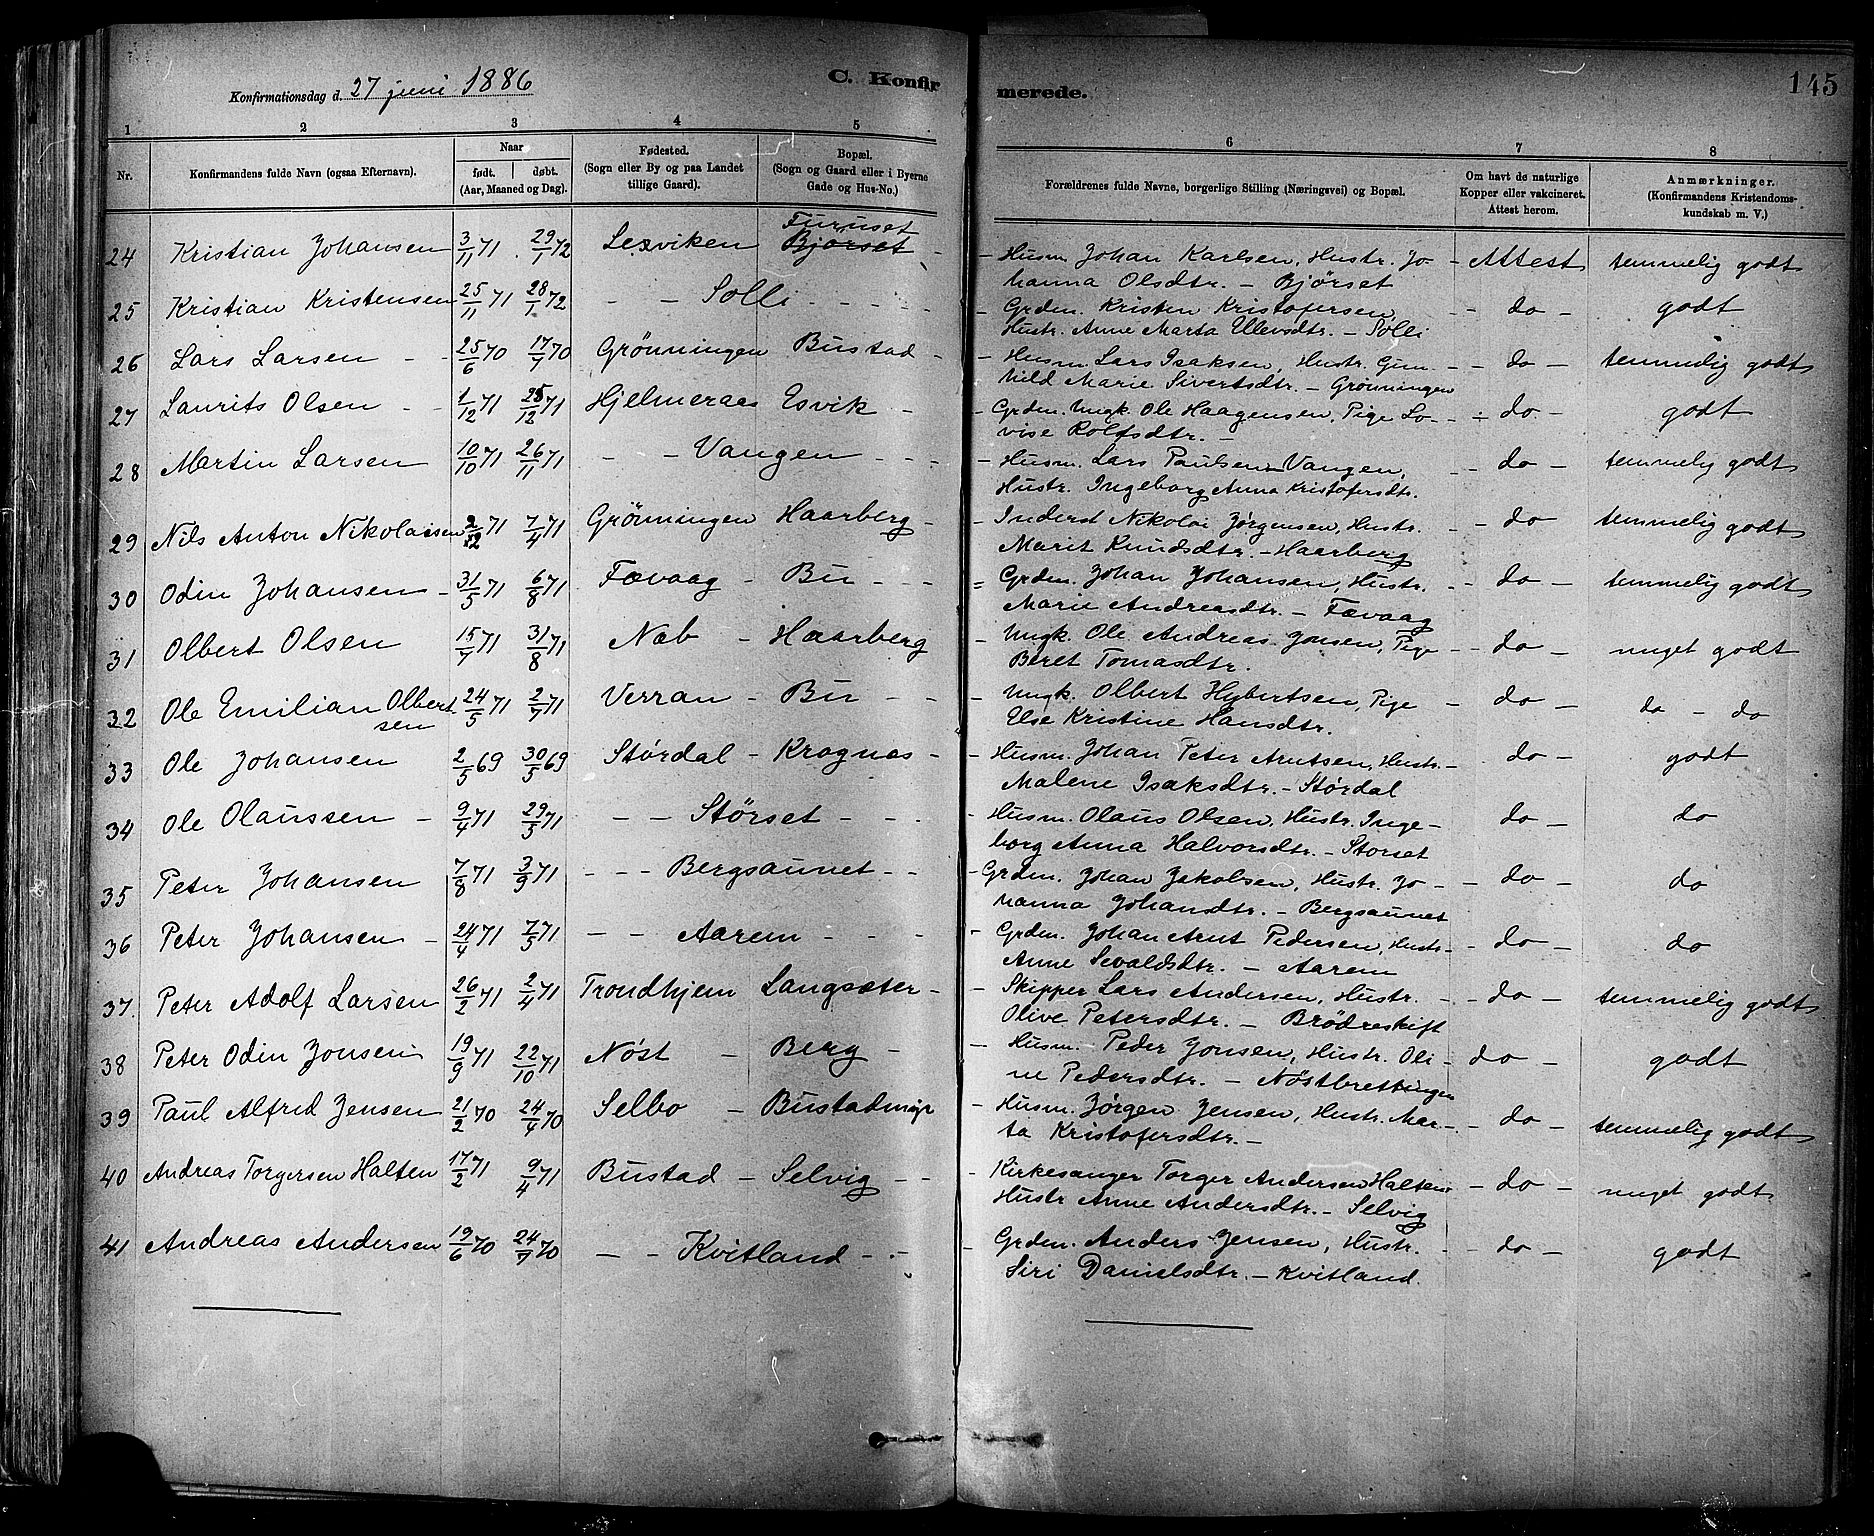 Konfirmationsdag d. 27 juni 1886
C. Konfirmerede.
145
1 2 3 4 5 6 7 8
Nr.
Konfirmandens fulde Navn (ogsaa Efternavn).
Naar
født. døbt.
(Aar, Maaned og Dag).
Fødested.
(Sogn eller By og paa Landet
tillige Gaard).
Bopæl.
(Sogn og Gaard eller i Byerne
Gade og Hus-No.)
Forældrenes fulde Navne, borgerlige Stilling (Næringsvei) og Bopæl.
Om havt de naturlige
Kopper eller vakcineret.
Attest herom.
Anmærkninger.
(Konfirmandens Kristendoms-
kundskab m. V.)
Furuset
24 Kristian Johansen 3/11 71 29/1 72 Lexviken Bjørset - Husm. Johan Karlsen, Hustr. Jo- - Attest temmelig godt
hanna Olsdtr. - Bjørset
25 Kristian Kristensen 25/11 71 28/1 72 - - Solli - - - Grden. Kristen Kristofersen, - do - godt
Hustr. Anne Marta Ellevsdtr. - Solli
26 Lars Larsen - 25/6 70 17/7 70 Grönningen Bustad - Husm. Lars Isaksen, Hustr. Gun- - do - temmelig godt
hild Marie Sivertsdtr. - Grönningen
27 Laurits Olsen - - 1/12 71 25/12 71 Hjelmeraas Esvik - Grden. Ungk. Ole Haagensen, Pige Lo- - do - godt
vise Rolfsdtr. -
28 Martin Larsen 10/10 71 26/11 71 - - Vangen - - - Husm. Lars Paulsen Vangen, - do - temmelig godt
Hustr. Ingeborg Anna Kristofersdtr.
29 Nils Anton Nikolaisen 2/2 71 7/4 71 Grönningen Haarberg - Inderst Nikolai Jørgensen, Hustr. - do - temmelig godt
Marit Knudsdtr. - Haarberg
30 Odin Johansen - 31/5 71 6/8 71 Fævaag - Bu - - Grden. Johan Johansen, Hustr. - do - temmelig godt
Marie Andreasdtr. - Fævaag
31 Olbert Olsen 15/7 71 31/8 71 Næb - Haarberg - Ungk. Ole Andreas Jonsen, Pige - do - meget godt
Beret Tomasdtr.
32 Ole Emilian Olbert 24/5 71 2/7 71 Verran - Bu - - Ungk. Olbert Hybertsen, Pige - do - do - do
sen Else Kristine Hansdtr.
33 Ole Johansen 2/5 69 30/5 69 Størdal - Krognes - Husm. Johan Peter Arntsen, Hustr. - do - godt
Malene Isaksdtr. - Størdal
34 Ole Olaussen - 9/4 71 29/5 71 - - Størset - - Husm. Olaus Olsen, Hustr. Inge- do - do
borg Anna Halvorsdtr. - Storset
35 Peter Johansen 7/8 71 3/9 71 - - - Bergsaunet - - - Grden. Johan Jakobsen, Hustr. Jo- - do - do
hanna Johansdtr. - Bergsaunet
36 Peter Johansen - 24/4 71 7/5 71 - - Aarem - - - Grden. Johan Arnt Pedersen, Hustr. - do - do
Anne Sevaldsdtr. - Aarem
37 Peter Adolf Larsen 26/2 71 2/4 71 Trondhjem Langsæter - Skipper Lars Andersen, Hustr. - do - temmelig godt
Olive Petersdtr. - Brödreskift
38 Peter Odin Jonsen 19/9 71 22/10 71 Nøst - Berg - - Husm. Peder Jonsen, Hustr. Oli- do - godt
ne Pedersdtr. - Nøstbrettingen
39 Paul Alfred Jensen 21/2 70 24/4 70 Selbo - Bustadmyr - Husm. Jørgen Jensen, Hustr. Mar- do - temmelig godt
ta Kristofersdtr. -
40 Andreas Torgersen Halten 17/2 71 9/4 71 Bustad - Selvig - - Kirkesanger Torger Andersen Halten - do - meget godt
Hustr Anne Andersdtr. - Selvig
41 Andreas Andersen 19/6 70 24/7 70 - - Kvitland - - Grden. Anders Jensen, Hustr. - do - godt
Siri Danielsdtr. - Kvitland.